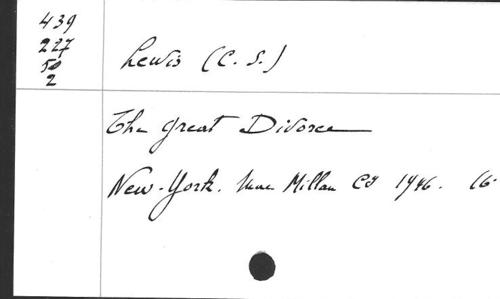 439
227
50
2
Lewis (C. S.)
The great Divorce
New-York. Mac Millan Cy 1946. 16